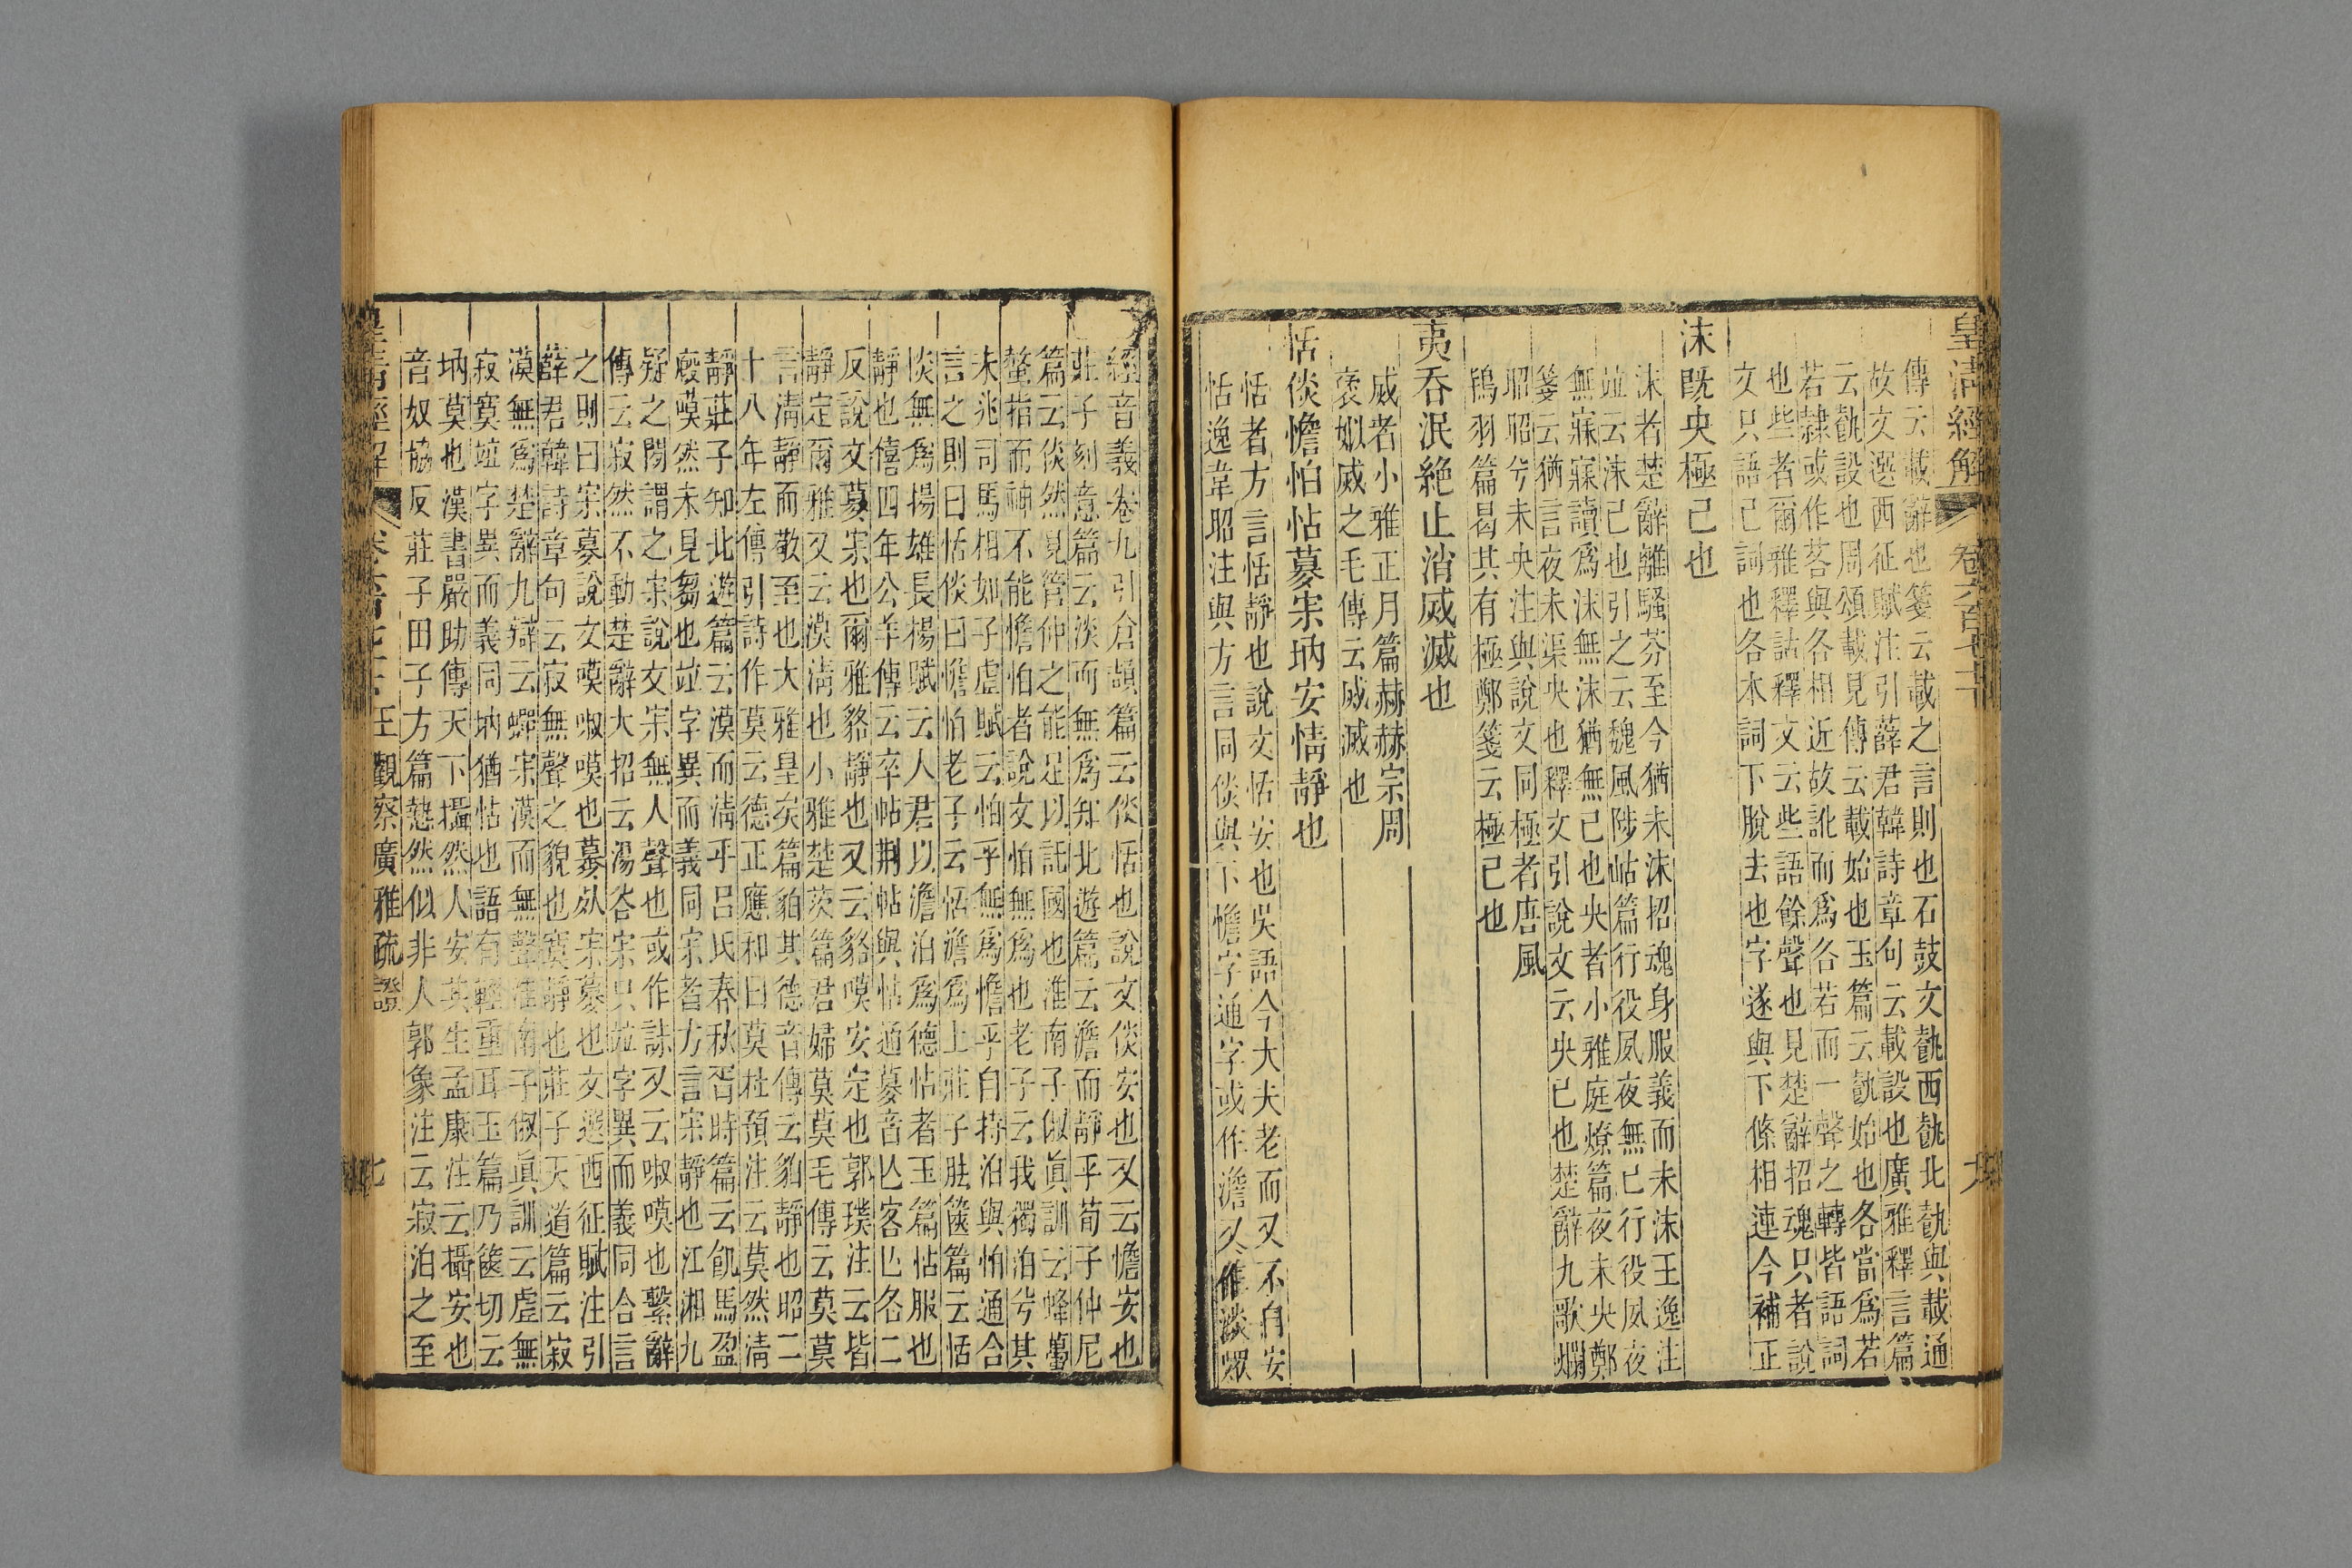 皇清經解
卷六百七十
傳云載辭也箋云載之言則也石鼓文䡄西䡄北䡄與載通
故文選西征賦注引薛君韓詩章句云載設也廣雅釋言篇
云䡄設也周頌載見傳云載始也玉篇云䡄始也各當爲若
若隸或作㕣與各相近故訛而爲各若而一聲之轉皆語詞
也些者爾雅釋詁釋文云些語餘聲也見楚辭招魂只者說
文只語已詞也各本詞下脫去也字遂與下條相連今補正
沬既央極已也
沬者楚辭離騷芬至今猶未沬招魂身服義而未沬王逸注
竝云沬已也引之云魏風陟岵篇行役夙夜無已行役夙夜
無寐寐讀爲沬無沬猶無已也央者小雅庭燎篇夜未央鄭
箋云猶言夜未渠央也釋文引說文云央已也楚辭九歌爛
昭昭兮未央注與說文同極者唐風
鴇羽篇曷其有極鄭箋云極已也
夷呑泯絶止消烕滅也
烕者小雅正月篇赫赫宗周
褒姒烕之毛傳云烕滅也
恬倓憺怕怗募宗吶安情靜也
恬者方言恬靜也說文恬安也吳語今大夫老而又不自安
恬逸韋昭注與方言同倓與下憺字通字或作澹又作淡眾
經音義卷九引倉頡篇云倓恬也說文倓安也又云憺安也
莊子刻意篇云淡而無爲知北遊篇云澹而靜乎荀子仲尼
篇云倓然見管仲之能足以託國也淮南子俶眞訓云蜂蠆
螫指而神不能憺怕者說文怕無爲也老子云我獨泊兮其
未兆司馬相如子虛賦云怕乎無爲憺乎自持泊與怕通合
言之則曰恬倓曰憺怕老子云恬澹爲上莊子胠篋篇云恬
倓無爲揚雄長楊賦云人君以澹泊爲德怗者玉篇怗服也
靜也僖四年公羊傳云卒帖荆帖與怗通募音亾客亾各二
反說文募宗也爾雅貉靜也又云貉嘆安定也郭璞注云皆
靜定爾雅又云漠淸也小雅楚茨篇君婦莫莫毛傳云莫莫
言淸靜而敬至也大雅皇矣篇貊其德音傳云貊靜也昭二
十八年左傳引詩作莫云德正應和曰莫杜預注云莫然淸
靜莊子知北遊篇云漠而淸乎呂氏春秋胥時篇云飢馬盈
廄嘆然未見芻也竝字異而義同宗者方言宗靜也江湘九
疑之閒謂之宗說文宗無人聲也或作䛳又云㖟嘆也繫辭
傳云寂然不動楚辭大招云湯谷宗只竝字異而義同合言
之則曰宗募說文嘆㖟嘆也募夶宗募也文選西征賦注引
薛君韓詩章句云寂無聲之貌也寞靜也莊子天道篇云寂
漠無爲楚辭九辯云蟬宗漠而無聲淮南子俶眞訓云虛無
寂寞竝字異而義同吶猶怗也語有輕重耳玉篇乃篋切云
吶莫也漢書嚴助傳天下攝然人安其生孟康注云攝安也
音奴協反莊子田子方篇慹然似非人郭象注云寂泊之至
皇淸經解
王觀察廣雅疏證